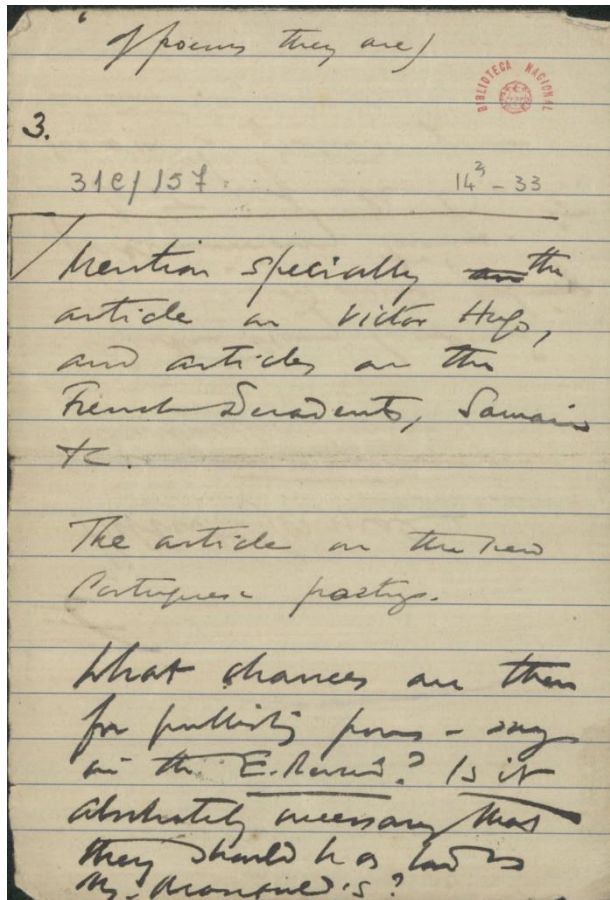 of poems they are)
BIBLIOTECA NACIONAL
3.
31E/157.
14³ - 33
Mention specially the
article on Victor Hugo,
and articles on the
French Decadents, Samain
&c.
The article on the new
Portuguese poetry.
What chances are there
for publishing poems - say
in the E. Review? Is it
absolutely necessary that
they should be as bad as
Mr.